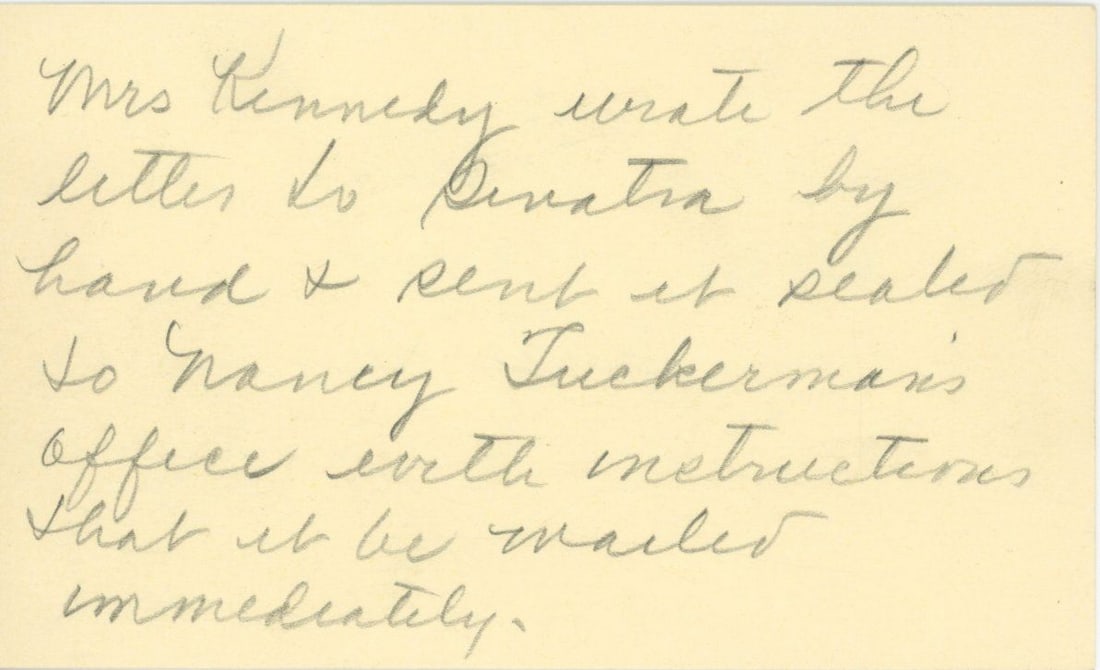 Mrs Kennedy wrote the
letter to Sinatra by
hand & sent it sealed
to Nancy Tuckerman's
office with instructions
that it be mailed
immediately.